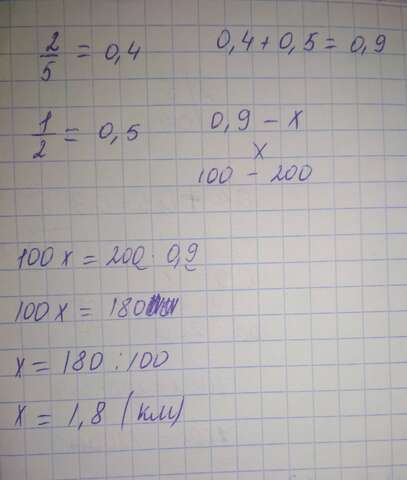 2/5 = 0,4
0,4 + 0,5 = 0,9
1/2 = 0,5
0,9 - x
x
100 - 200
100 x = 200 · 0,9
100 x = 180
x = 180 : 100
x = 1,8 (км)